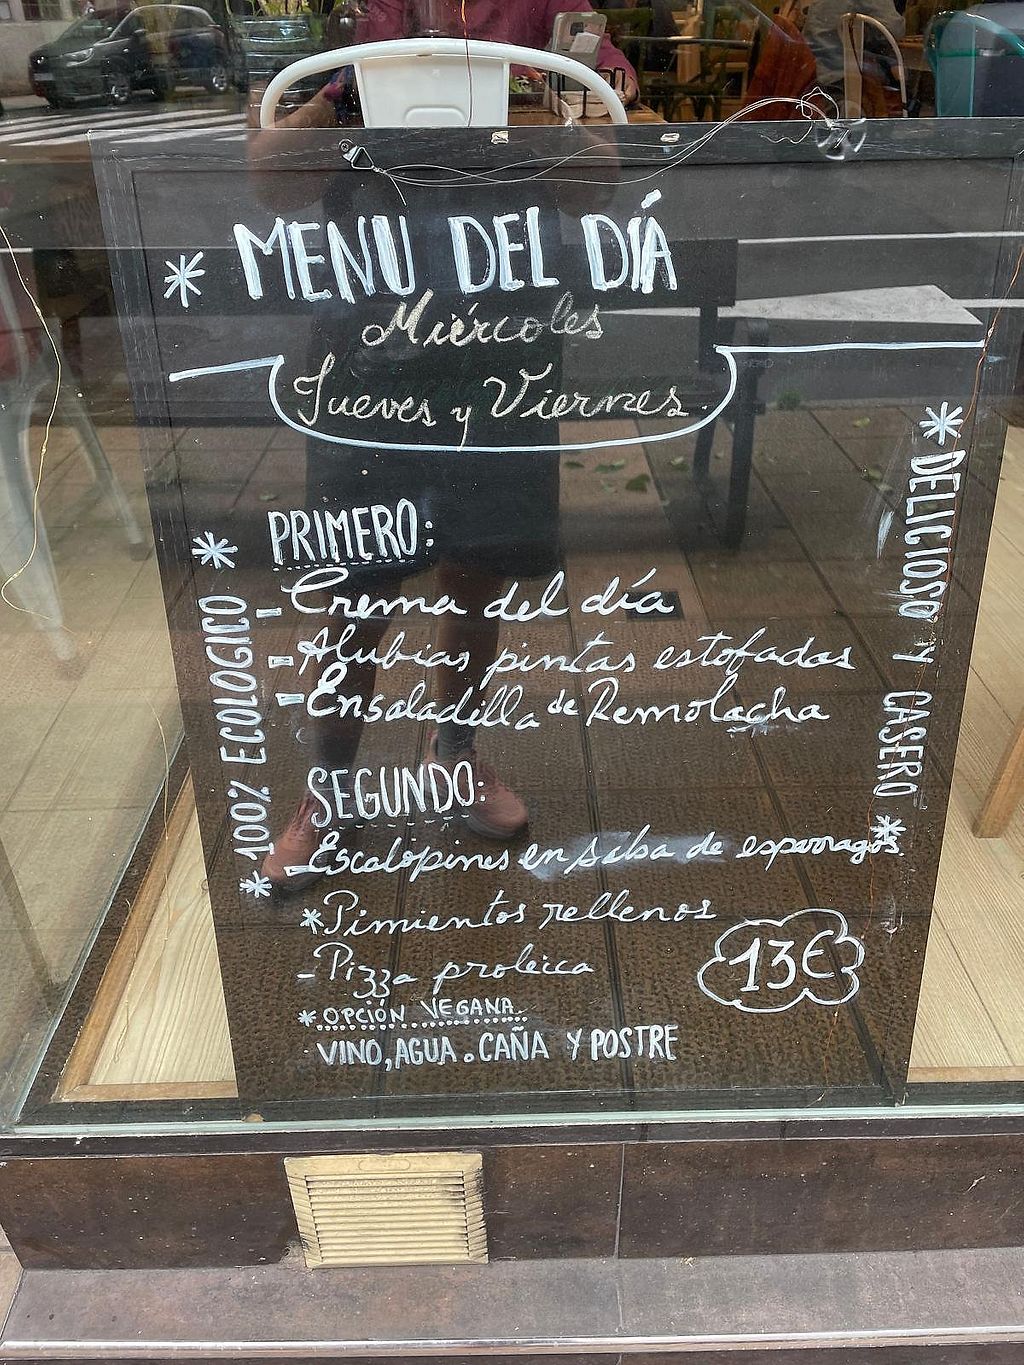 * MENU DEL DÍA
Miércoles
Jueves y Viernes.
PRIMERO:
- Crema del día
- Alubias pintas estofadas
- Ensaladilla de Remolacha
SEGUNDO:
- Escalopines en salsa de esparragos.
* Pimientos rellenos
- Pizza proleica
* OPCIÓN VEGANA
VINO, AGUA. CAÑA Y POSTRE
13€
* 100% ECOLOGICO *
* DELICIOSO Y CASERO *